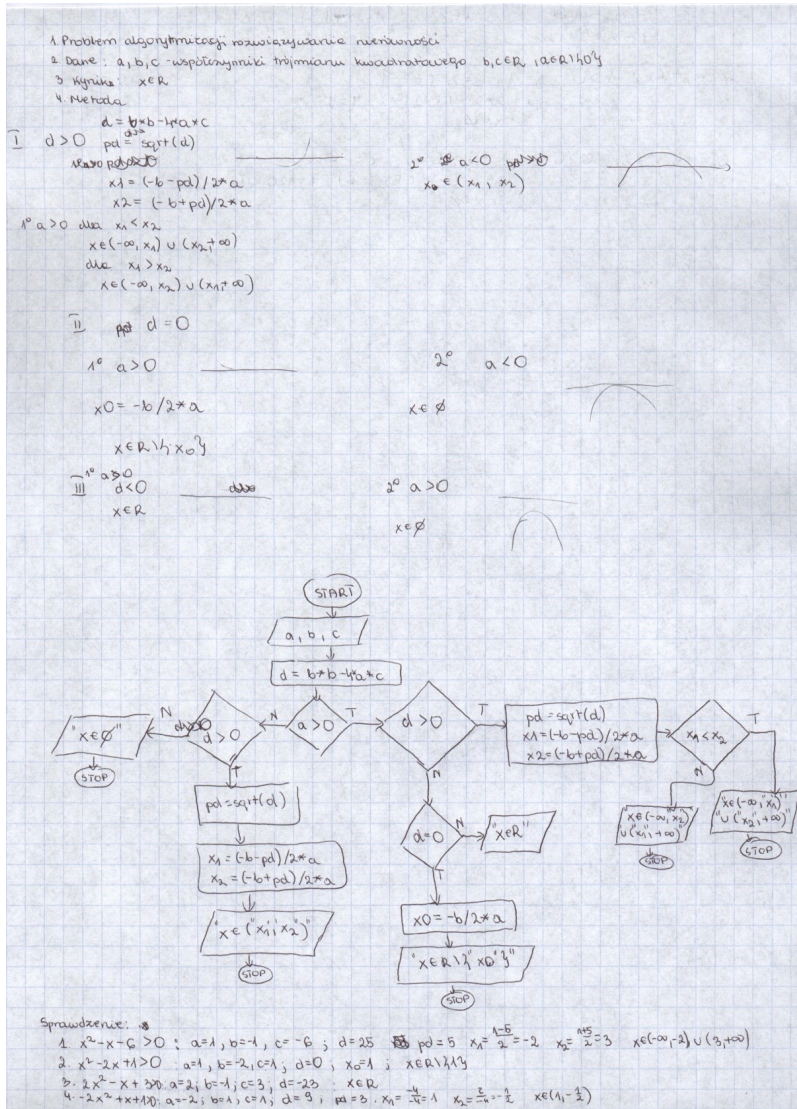 1. Problem algorytmizacji rozwiązywania nierówności
2 Dane: a, b, c - współczynniki trójmianu kwadratowego b,c∈R , a∈R\{0}
3 Wyniki: x∈R
4. Metoda
d = b*b-4*a*c
I d>0 pd = sqrt(d)
x1 = (-b-pd)/2*a
x2 = (-b+pd)/2*a
2° a<0
x ∈ (x1, x2)
1° a>0 dla x1 < x2
x∈(-∞, x1) ∪ (x2,+∞)
dla x1 > x2
x∈(-∞, x2) ∪ (x1,+∞)
II d=0
1° a>0
2° a<0
x0 = -b/2*a
x∈ ∅
x∈R\{x0}
1° a>0
III d<0
2° a>0
x∈R
x∈∅
START
a, b, c
d = b*b-4*a*c
"x∈∅"
N
d>0
N
a>0
T
d>0
T
pd = sqrt(d)
x1=(-b-pd)/2*a
x2=(-b+pd)/2*a
x1<x2
T
STOP
T
N
N
pd=sqrt(d)
d=0
N
"x∈R"
"x∈(-∞,"x2")
∪("x1",+∞)"
"x∈(-∞,"x1")"
"∪("x2",+∞)"
STOP
STOP
x1=(-b-pd)/2*a
x2=(-b+pd)/2*a
T
x0=-b/2*a
"x∈("x1","x2")"
"x∈R\{"x0"}"
STOP
STOP
Sprawdzenie:
1. x²-x-6>0 : a=1, b=-1, c=-6 ; d=25 pd=5 x1=(1-5)/2=-2 x2=(1+5)/2=3 x∈(-∞,-2)∪(3,+∞)
2. x²-2x+1>0 : a=1, b=-2, c=1; d=0, x0=1 ; x∈R\{1}
3. 2x²-x+3>0: a=2; b=-1; c=3; d=-23 ; x∈R
4. -2x²+x+1>0: a=-2; b=1; c=1; d=9, pd=3. x1=-4/-4=1 x2=2/-4=-1/2 x∈(1,-1/2)